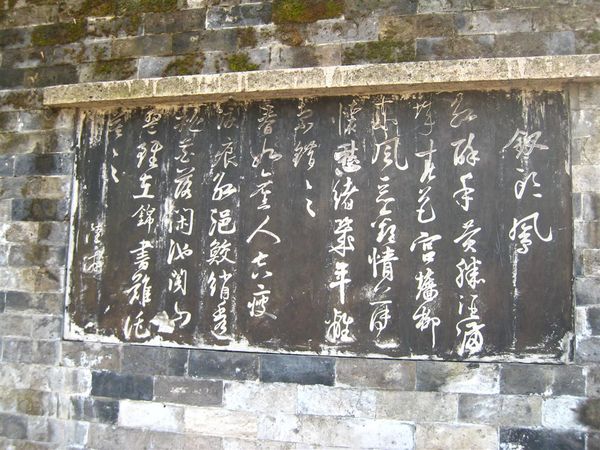 釵頭鳳
紅酥手黃縢酒滿
城春色宮牆柳
東風惡歡情薄一
懷愁緒幾年離
索錯〻〻
春如舊人空瘦
淚痕紅浥鮫綃透
桃花落閒池閣山
盟雖在錦書難託
莫〻〻
陸游